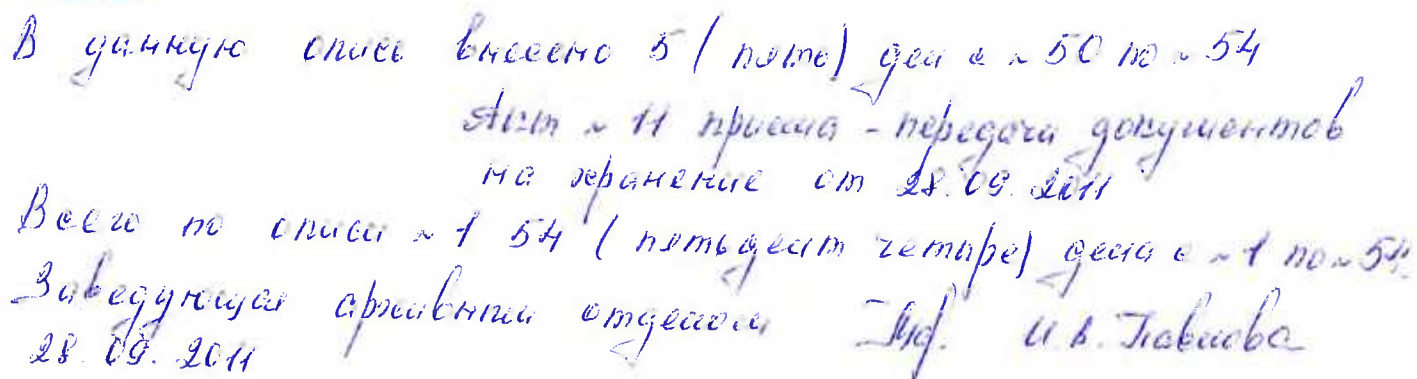 В данную опись внесено 5 (пять) дел с ~ 50 по ~ 54
Акт ~ 11 приема - передачи документов
на хранение от 28.09.2011
Всего по описи ~ 1 54 (пятьдесят четыре) дела с ~ 1 по ~ 54.
Заведующая архивным отделом И.В. Павлова
28.09.2011